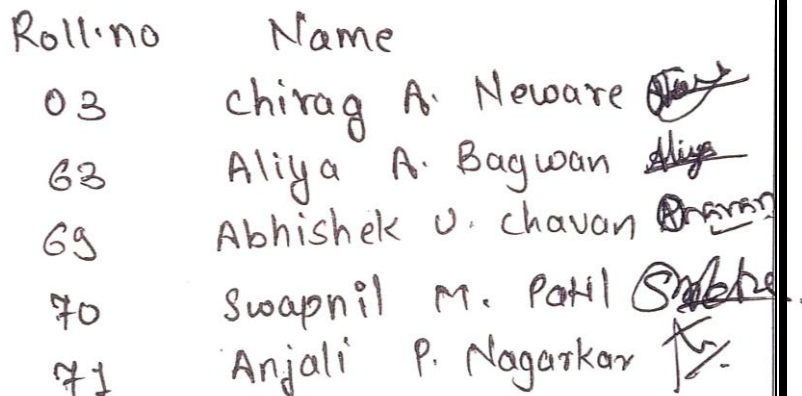 Roll.no Name
03 Chirag A. Neware
63 Aliya A. Bagwan Aliya
69 Abhishek U. Chavan
70 Swapnil M. Patil
71 Anjali P. Nagarkar